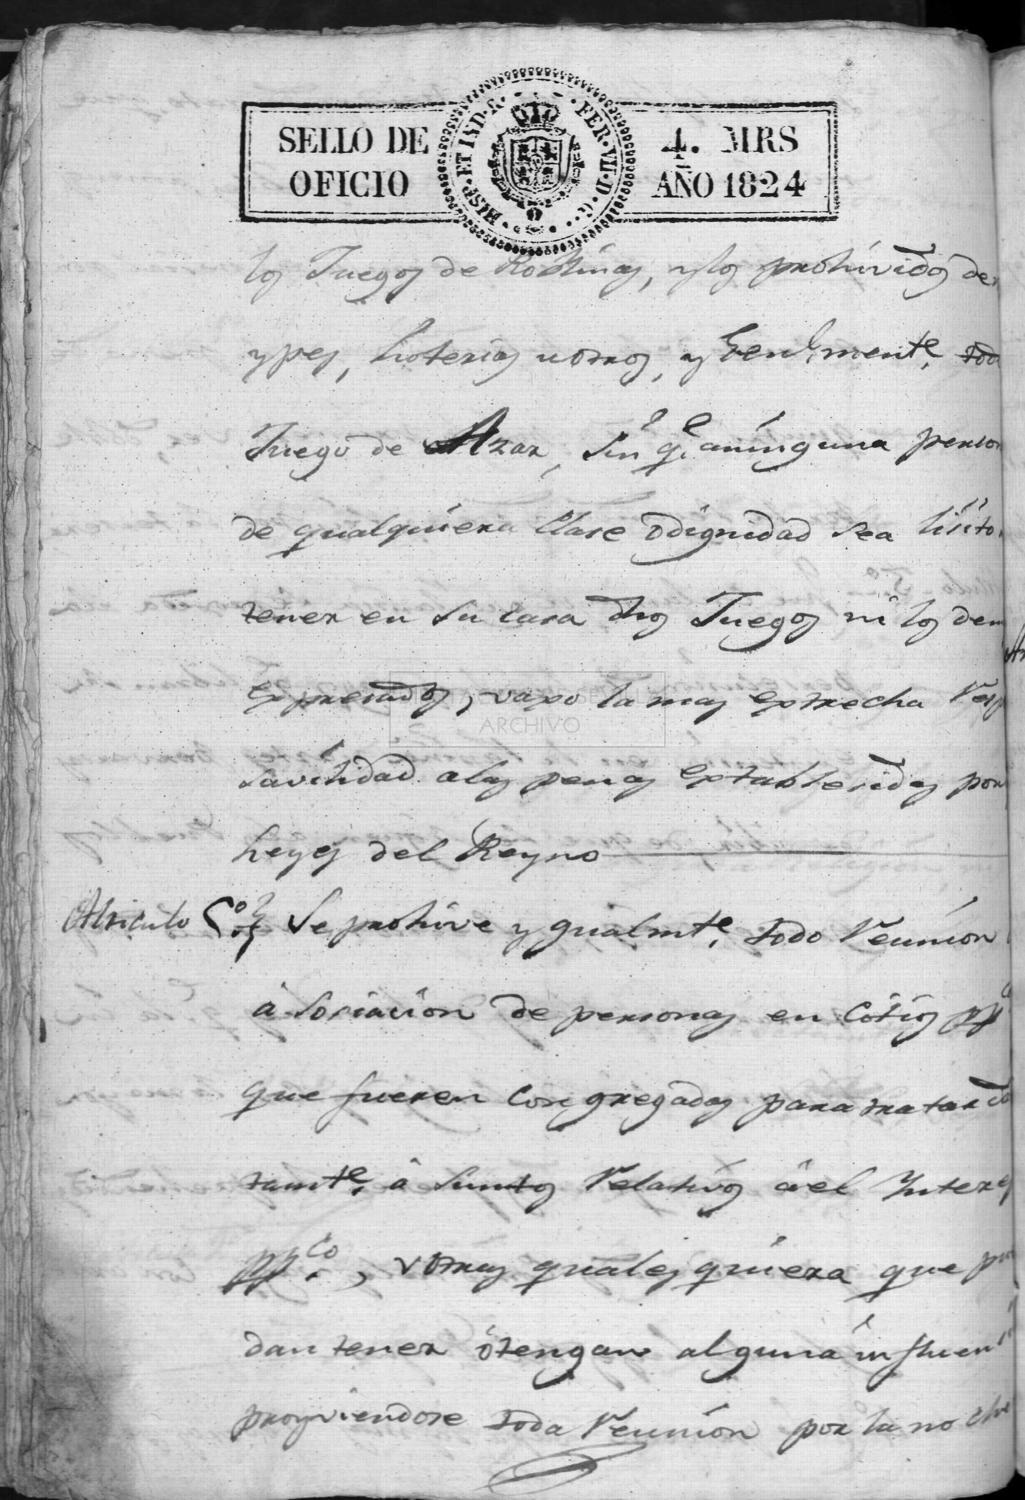 SELLO DE OFICIO
HISP. ET IND. R. FER. VII. D. G.
4. MRS
AÑO 1824
los Juegos de, y los prohividos de
ypes, Loterias u otros, y Genlmente. toda
Juego de Azar, sin qe. aninguna person
de qualquiera Clase odignidad sea lisito
tener en su casa dhos Juegos ni los dem
expresados, vaxo la mas extrecha Resp
savilidad alas penas extablesidas por
Leyes del Reyno
Atriculo 6o. Se prohive ygualmte. todo Reunion
asosiacion de personas en Cotios pp
que fueren Congregadas para tratar
tamte. a suntos Relativos a el Interes
ppco., v otras qualesquiera que pue
dan tener o tengan alguna influen
proyviendose toda Reunion por la noche
ARCHIVO